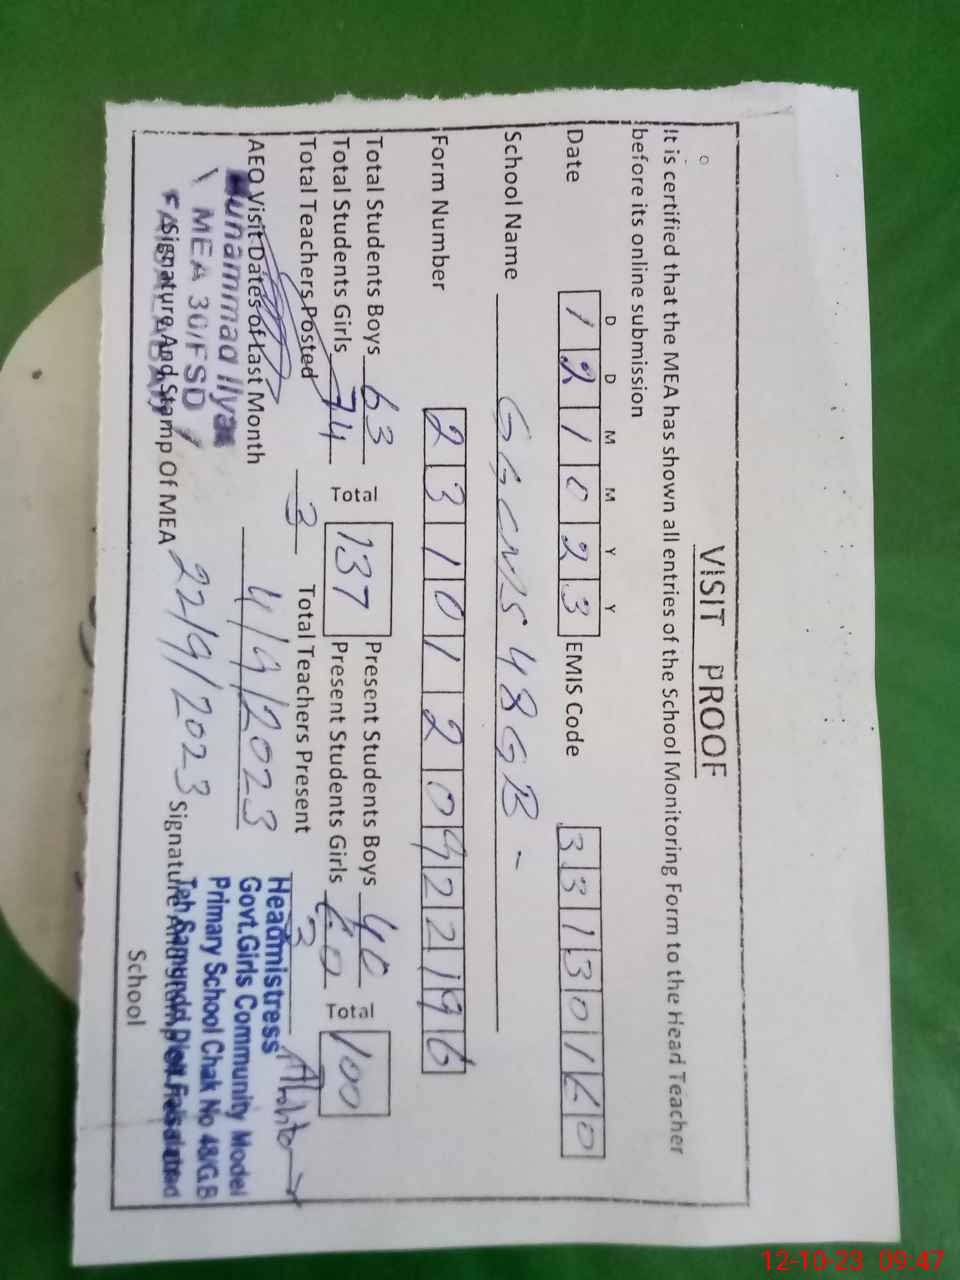 VISIT PROOF
It is certified that the MEA has shown all entries of the School Monitoring Form to the Head Teacher
before its online submission
D D M M Y Y
Date 1 2 1 0 2 3 EMIS Code 3 3 1 3 0 1 6 0
School Name 48GB -
Form Number 2 3 1 0 1 2 2 0 9 2 2 1 9 6
Total Students Boys 63 Total 137 Present Students Boys 40 Total 100
Total Students Girls 74 Present Students Girls 60
Total Teachers Posted 3 Total Teachers Present 3
AEO Visit Dates of Last Month 4/9/2023
22/9/2023
Muhammad Ilyas
MEA 30/FSD
FAISALABAD
Signature And Stamp Of MEA
Signature And Stamp of
School
Headmistress
Govt.Girls Community Model
Primary School Chak No 48/G.B
Teh Samundri Distt Faisalabad
12-10-23 09:47